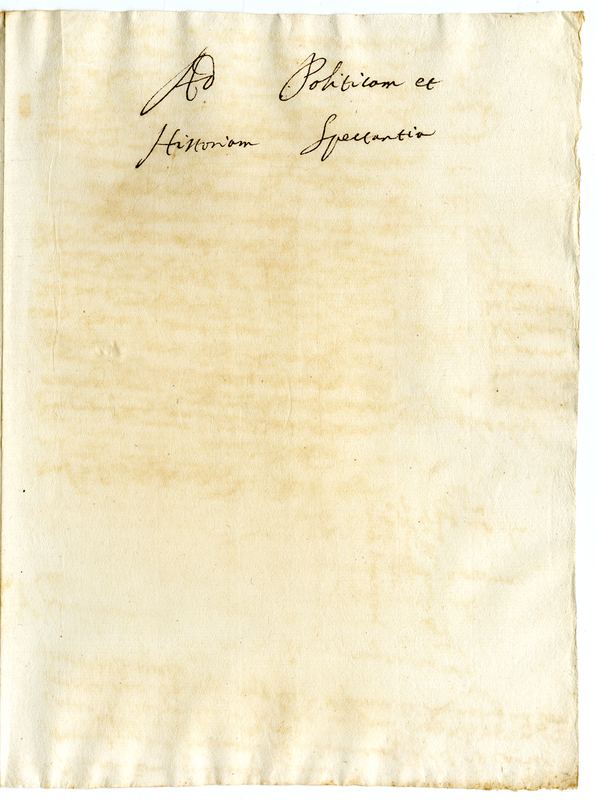 Ad Politicam et
Historiam Spectantia